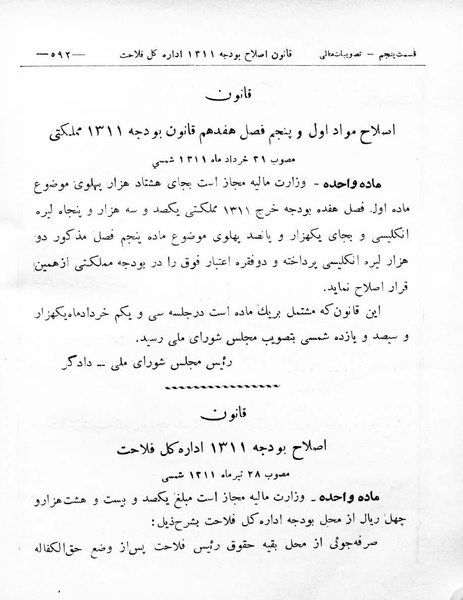 قسمت پنجم – تصویبات مالی قانون اصلاح بودجه ۱۳۱۱ اداره کل فلاحت —۵۹۲—
قانون
اصلاح مواد اول و پنجم فصل هفدهم قانون بودجه ۱۳۱۱ مملکتی
مصوب ۳۱ خرداد ماه ۱۳۱۱ شمسی
ماده واحده - وزارت مالیه مجاز است بجای هشتاد هزار پهلوی موضوع
ماده اول فصل هفده بودجه خرج ۱۳۱۱ مملکتی یکصد و سه هزار و پنجاه لیره
انگلیسی و بجای یکهزار و پانصد پهلوی موضوع ماده پنجم فصل مذکور دو
هزار لیره انگلیسی پرداخته و دوفقره اعتبار فوق را در بودجه مملکتی ازهمین
قرار اصلاح نماید.
این قانون که مشتمل بریك ماده است درجلسه سی و یکم خردادماه یکهزار
و سیصد و یازده شمسی بتصویب مجلس شورای ملی رسید.
رئیس مجلس شورای ملی – دادگر
قانون
اصلاح بودجه ۱۳۱۱ اداره کل فلاحت
مصوب ۲۸ تیرماه ۱۳۱۱ شمسی
ماده واحده - وزارت مالیه مجاز است مبلغ یکصد و بیست و هشت هزارو
چهل ریال از محل بودجه اداره کل فلاحت بشرح ذیل:
صرفه‌جوئی از محل بقیه حقوق رئیس فلاحت پس‌از وضع حق‌الکفاله